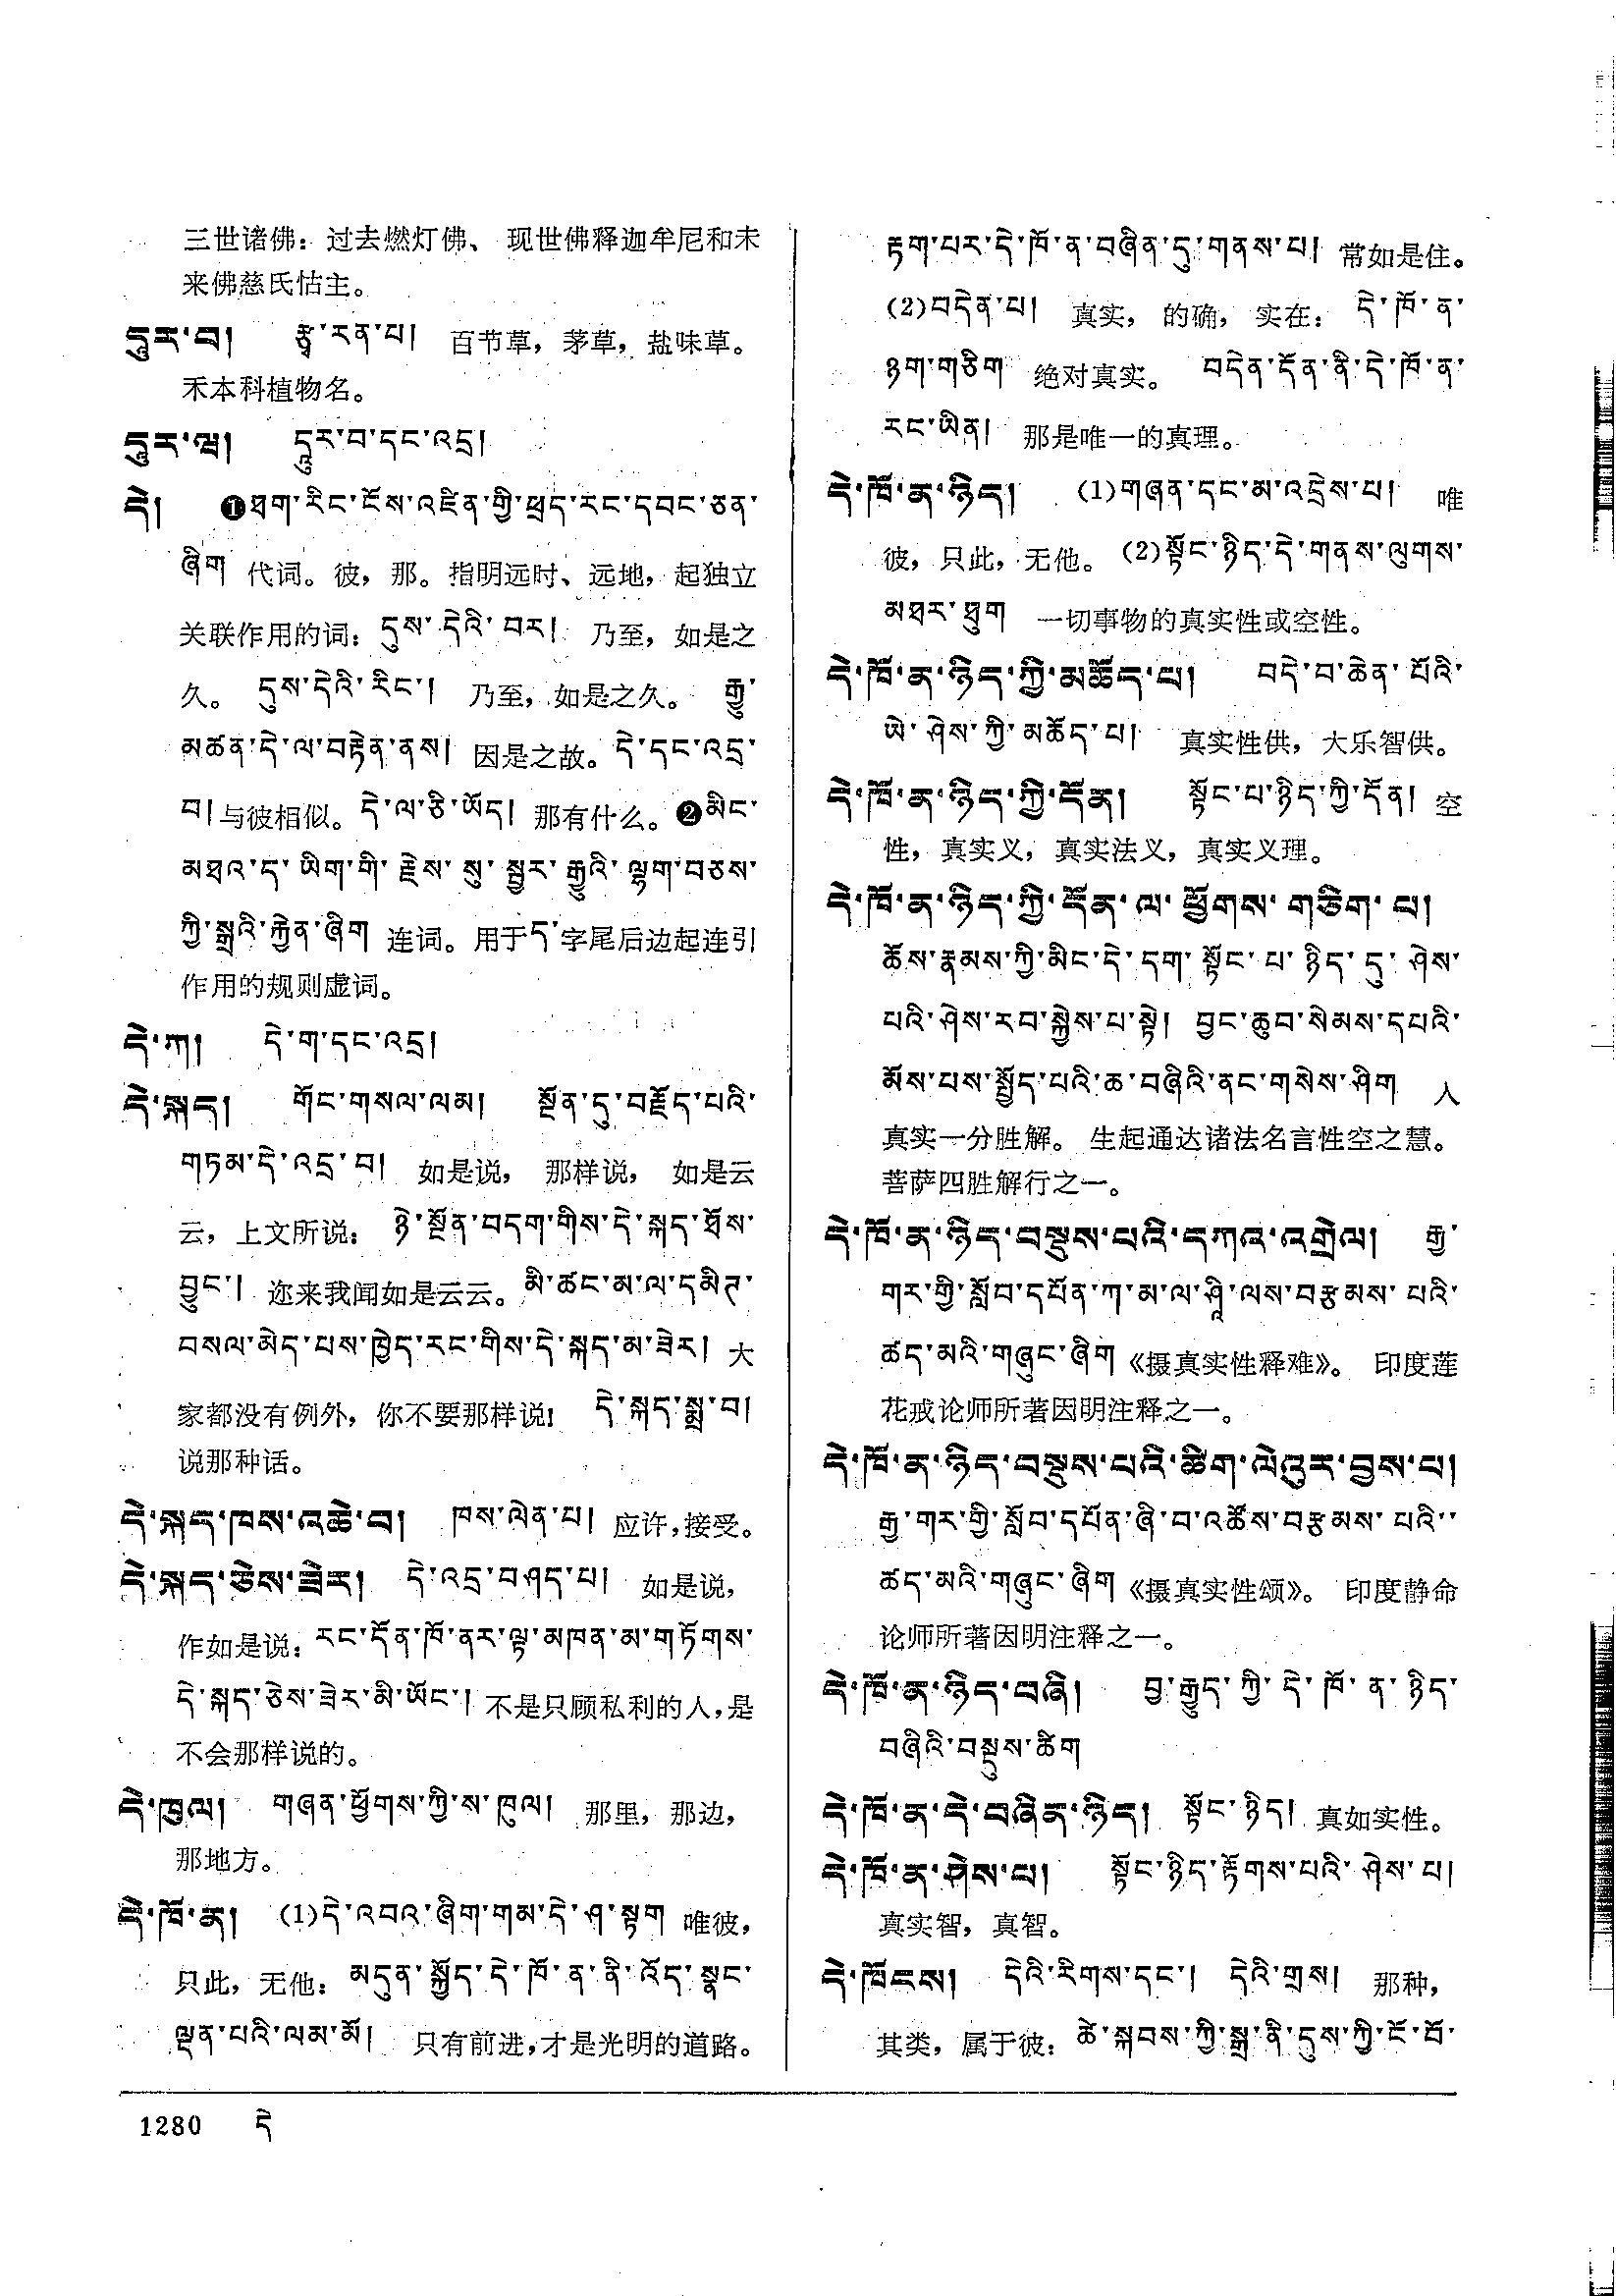 三世诸佛：过去燃灯佛、现世佛释迦牟尼和未
来佛慈氏怙主。
དཱུར་བ། རྩྭ་རན་པ། 百节草，茅草，盐味草。
禾本科植物名。
དཱུར་ཝ། དཱུར་བ་དང་འདྲ།
དེ། ❶ཐག་རིང་ངོས་འཛིན་གྱི་ཕྲད་རང་དབང་ཅན་
ཞིག 代词。彼，那。指明远时、远地，起独立
关联作用的词：དུས་དེའི་བར། 乃至，如是之
久。 དུས་དེའི་རིང་། 乃至，如是之久。 རྒྱུ་
མཚན་དེ་ལ་བརྟེན་ནས། 因是之故。དེ་དང་འདྲ་
བ། 与彼相似。དེ་ལ་ཅི་ཡོད། 那有什么。❷མིང་
མཐའ་ད་ཡིག་གི་རྗེས་སུ་སྦྱར་རྒྱུའི་ལྷག་བཅས་
ཀྱི་སྒྲའི་རྐྱེན་ཞིག 连词。用于ད་字尾后边起连引
作用的规则虚词。
དེ་ཀ། དེ་ག་དང་འདྲ།
དེ་སྐད། གོང་གསལ་ལམ། སྔོན་དུ་བརྗོད་པའི་
གཏམ་དེ་འདྲ་བ། 如是说，那样说，如是云
云，上文所说：ཉེ་སྔོན་བདག་གིས་དེ་སྐད་ཐོས་
བྱུང་། 迩来我闻如是云云。མི་ཚང་མ་ལ་དམིཊ་
བསལ་མེད་པས་ཁྱེད་རང་གིས་དེ་སྐད་མ་ཟེར། 大
家都没有例外，你不要那样说！ དེ་སྐད་སྨྲ་བ།
说那种话。
དེ་སྐད་ཁས་འཆེ་བ། ཁས་ལེན་པ། 应许，接受。
དེ་སྐད་ཅེས་ཟེར། དེ་འདྲ་བཤད་པ། 如是说，
作如是说：རང་དོན་ཁོ་ནར་ལྟ་མཁན་མ་གཏོགས་
དེ་སྐད་ཅེས་ཟེར་མི་ཡོང་། 不是只顾私利的人，是
不会那样说的。
དེ་ཁུལ། གཞན་ཕྱོགས་ཀྱི་ས་ཁུལ། 那里，那边，
那地方。
དེ་ཁོ་ན། (1)དེ་འབའ་ཞིག་གམ་དེ་ཤ་སྟག 唯彼，
只此，无他：མདུན་སྐྱོད་དེ་ཁོ་ན་ནི་འོད་སྣང་
ལྡན་པའི་ལམ་མོ། 只有前进，才是光明的道路。
རྟག་པར་དེ་ཁོ་ན་བཞིན་དུ་གནས་པ། 常如是住。
(2)བདེན་པ། 真实，的确，实在：དེ་ཁོ་ན་
ཉག་གཅིག 绝对真实。 བདེན་དོན་ནི་དེ་ཁོ་ན་
རང་ཡིན། 那是唯一的真理。
དེ་ཁོ་ན་ཉིད། (1)གཞན་དང་མ་འདྲེས་པ། 唯
彼，只此，无他。(2)སྟོང་ཉིད་དེ་གནས་ལུགས་
མཐར་ཐུག 一切事物的真实性或空性。
དེ་ཁོ་ན་ཉིད་ཀྱི་མཆོད་པ། བདེ་བ་ཆེན་པོའི་
ཡེ་ཤེས་ཀྱི་མཆོད་པ། 真实性供，大乐智供。
དེ་ཁོ་ན་ཉིད་ཀྱི་དོན། སྟོང་པ་ཉིད་ཀྱི་དོན། 空
性，真实义，真实法义，真实义理。
དེ་ཁོ་ན་ཉིད་ཀྱི་དོན་ལ་ཕྱོགས་གཅིག་པ།
ཆོས་རྣམས་ཀྱི་མིང་དེ་དག་སྟོང་པ་ཉིད་དུ་ཤེས་
པའི་ཤེས་རབ་སྐྱེས་པ་སྟེ། བྱང་ཆུབ་སེམས་དཔའི་
མོས་པས་སྤྱོད་པའི་ཆ་བཞིའི་ནང་གསེས་ཤིག 人
真实一分胜解。 生起通达诸法名言性空之慧。
菩萨四胜解行之一。
དེ་ཁོ་ན་ཉིད་བསྡུས་པའི་དཀའ་འགྲེལ། རྒྱ་
གར་གྱི་སློབ་དཔོན་ཀ་མ་ལ་ཤཱི་ལས་བརྩམས་པའི་
ཚད་མའི་གཞུང་ཞིག 《摄真实性释难》。 印度莲
花戒论师所著因明注释之一。
དེ་ཁོ་ན་ཉིད་བསྡུས་པའི་ཚིག་ལེའུར་བྱས་པ།
རྒྱ་གར་གྱི་སློབ་དཔོན་ཞི་བ་འཚོས་བརྩམས་པའི་
ཚད་མའི་གཞུང་ཞིག 《摄真实性颂》。 印度静命
论师所著因明注释之一。
དེ་ཁོ་ན་ཉིད་བཞི། བྱ་རྒྱུད་ཀྱི་དེ་ཁོ་ན་ཉིད་
བཞིའི་བསྡུས་ཚིག
དེ་ཁོ་ན་དེ་བཞིན་ཉིད། སྟོང་ཉིད། 真如实性。
དེ་ཁོ་ན་ཤེས་པ། སྟོང་ཉིད་རྟོགས་པའི་ཤེས་པ།
真实智，真智。
དེ་ཁོངས། དེའི་རིགས་དང་། དེའི་གྲས། 那种，
其类，属于彼：ཚེ་སྐབས་ཀྱི་སྒྲ་ནི་དུས་ཀྱི་ངོ་བོ་
1280 དེ